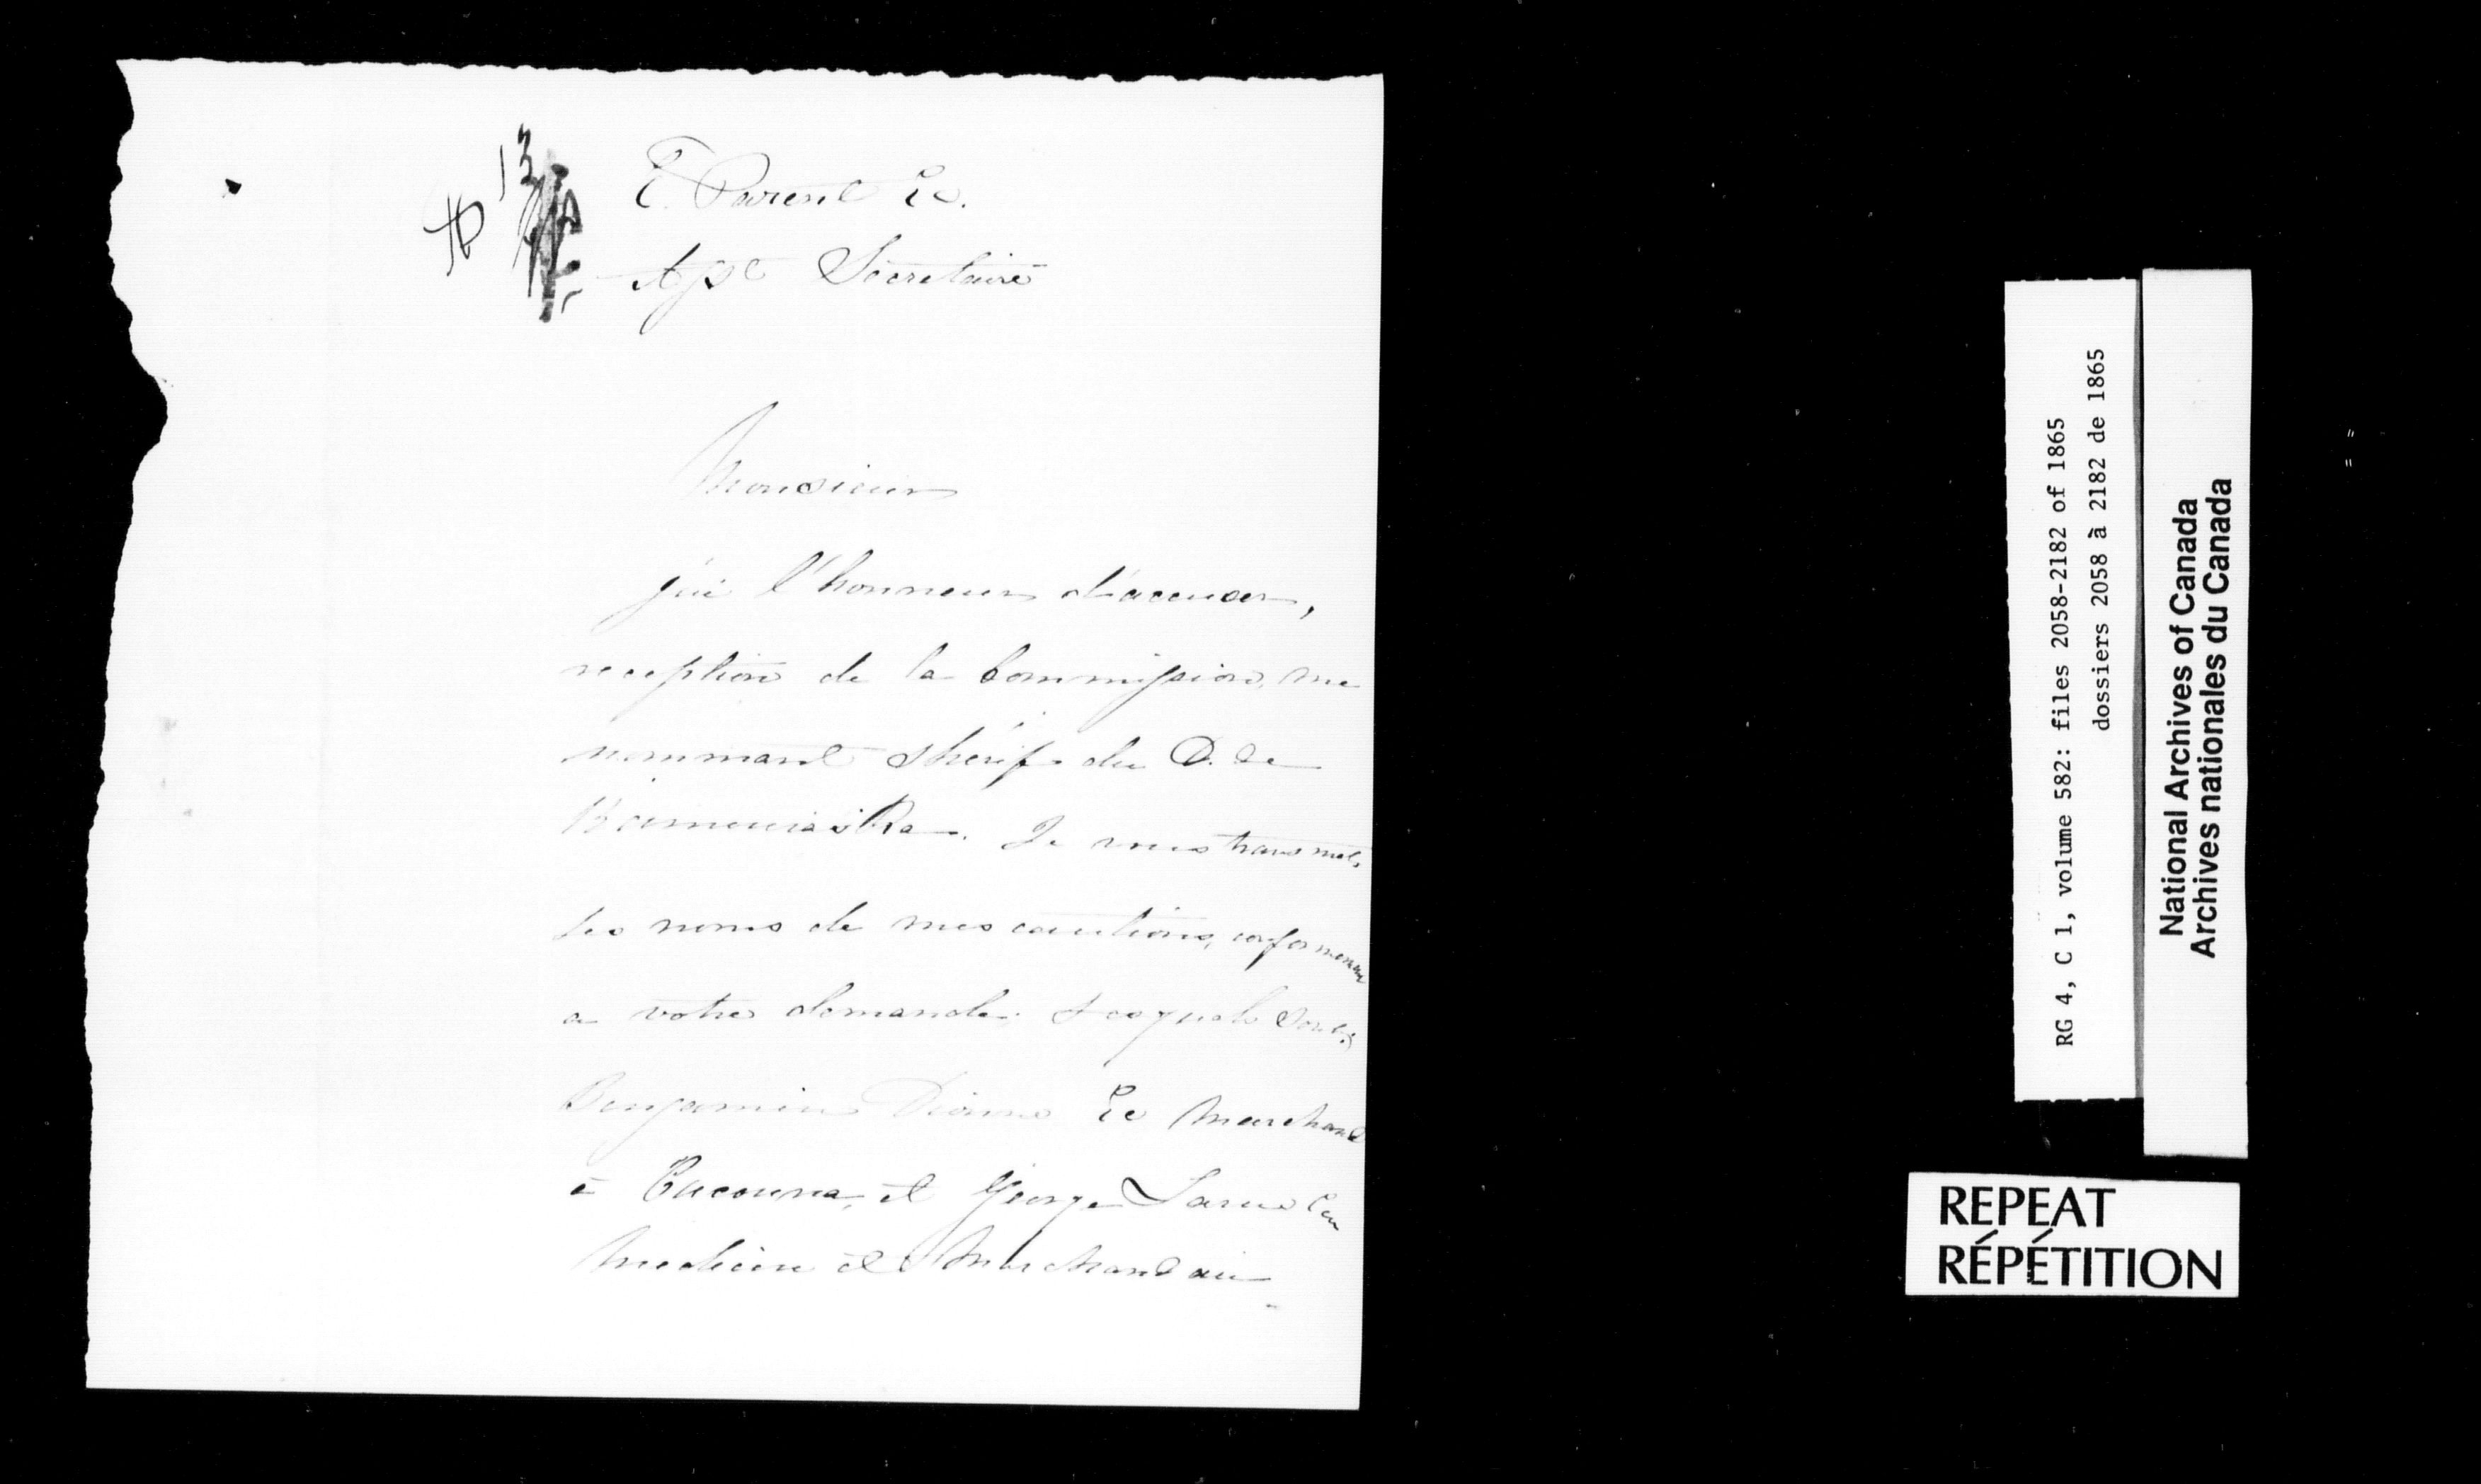 13
E. Parent Ec.
Asst Secretaire
Monsieur
j'ai l'honneur d'accuser,
reception de la Commission, me
nommant Shérif du D. de
Kamouraska. Je vous transmets
les noms de mes cautions, conformement
a votre demande; Lesquels sont;
Benjamin Dionne Ec Marchand
à Cacouna, et George Larue
Medecin et Marchand au
RG 4, C 1, volume 582: files 2058-2182 of 1865
dossiers 2058 à 2182 de 1865
National Archives of Canada
Archives nationales du Canada
REPEAT
RÉPÉTITION